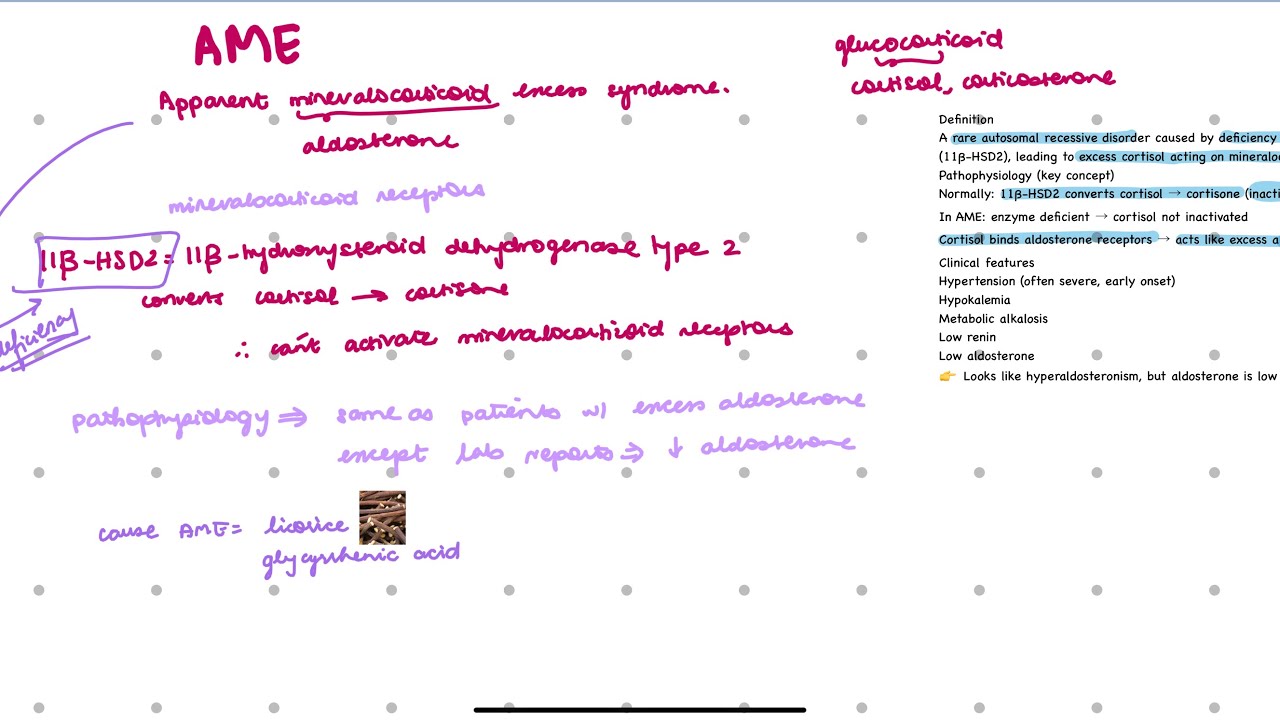 AME
Apparent mineralocorticoid excess syndrome.
aldosterone
mineralocorticoid receptors
11β-HSD2 = 11β-hydroxysteroid dehydrogenase type 2
converts cortisol → cortisone
∴ can't activate mineralocorticoid receptors
deficiency
pathophysiology ⇒ same as patients w/ excess aldosterone
except lab reports ⇒ ↓ aldosterone
cause AME = licorice
glycyrrhenic acid
glucocorticoid
cortisol, corticosterone
Definition
A rare autosomal recessive disorder caused by deficiency
(11β-HSD2), leading to excess cortisol acting on mineraloc
Pathophysiology (key concept)
Normally: 11β-HSD2 converts cortisol → cortisone (inacti
In AME: enzyme deficient → cortisol not inactivated
Cortisol binds aldosterone receptors → acts like excess a
Clinical features
Hypertension (often severe, early onset)
Hypokalemia
Metabolic alkalosis
Low renin
Low aldosterone
👉 Looks like hyperaldosteronism, but aldosterone is low